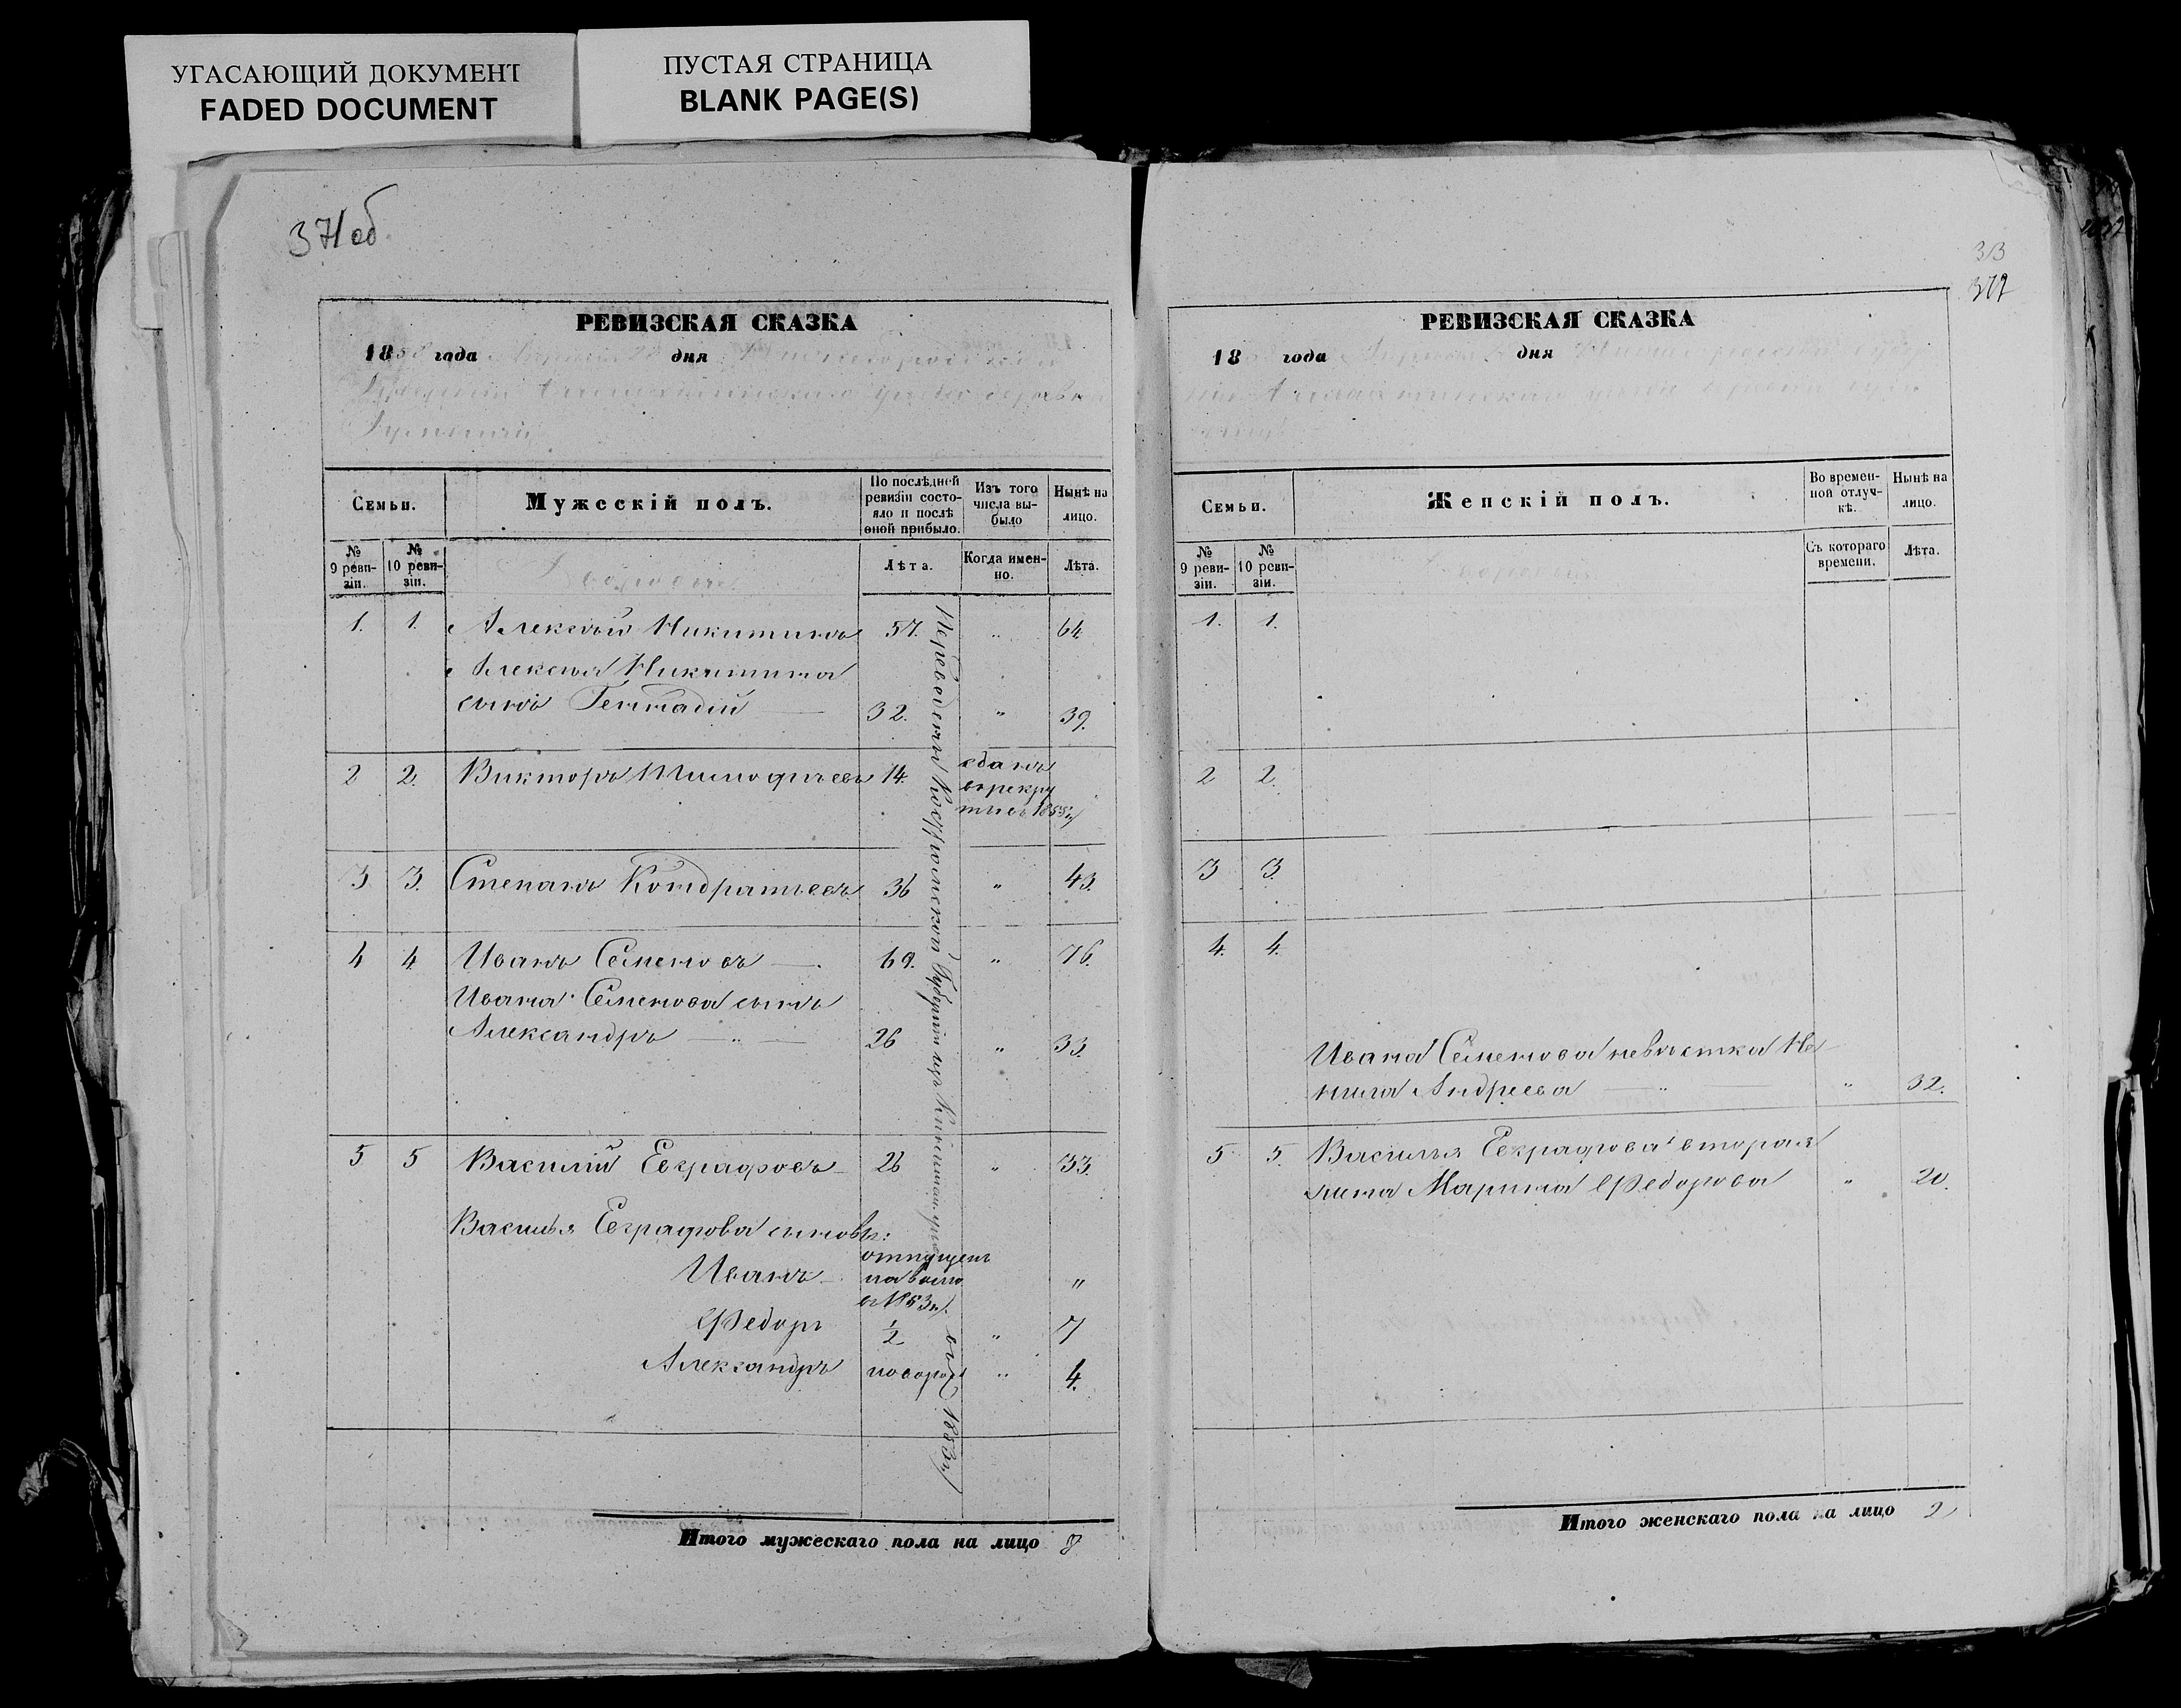 УГАСАЮЩИЙ ДОКУМЕНТ
FADED DOCUMENT
ПУСТАЯ СТРАНИЦА
BLANK PAGE(S)
371 об
РЕВИЗСКАЯ СКАЗКА
1858 года Апреля дня Нижегородской
Губернии уезда деревни
Семьи.
Мужескій полъ.
По послѣдней
ревизіи состо-
яло и послѣ
оной прибыло.
Изъ того
числа вы-
было
Нынѣ на
лицо.
№
9 реви-
зіи.
№
10 реви-
зіи.
Лѣта.
Когда имен-
но.
Лѣта.
1. 1. Алексѣй Никитинъ 57. " 64.
Алексѣя Никитина
сынъ Геннадій — 32. " 39.
2 2. Викторъ Тимофѣевъ 14. сданъ
въ рекру
ты въ 1855 г.
3 3. Степанъ Кондратьевъ 36 " 43.
4 4 Иванъ Семеновъ — 69. " 76.
Ивана Семенова сынъ
Александръ — " — 26 " 33.
5 5 Василій Евграфовъ 26 " 33.
Василья Евграфова сыновья:
Иванъ отпущенъ
на волю
в 1853 г. "
Федоръ 1/2 " 7
Александръ новорож " 4.
Переведены Костромской Губерніи изъ
в 1853 г.
Итого мужескаго пола на лицо 8
33
372
РЕВИЗСКАЯ СКАЗКА
18 года дня
Семьи.
Женскій полъ.
Во времен-
ной отлуч-
кѣ.
Нынѣ на
лицо.
№
9 реви-
зіи.
№
10 реви-
зіи.
Съ котораго
времени.
Лѣта.
1. 1.
2 2.
3 3.
4. 4.
Ивана Семенова невѣстка Не
нила Андреева — " " 32.
5 5. Василья Евграфова вторая
жена Марина Федорова " 20.
Итого женскаго пола на лицо 2